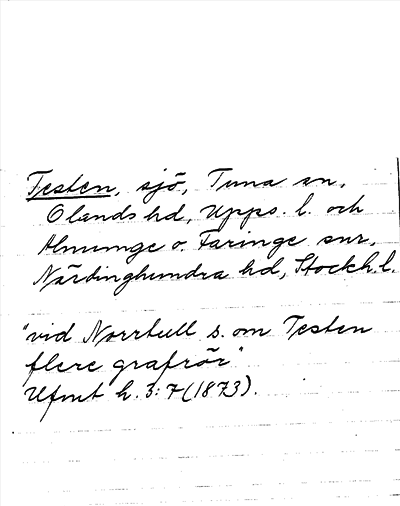 Testen, sjö, Tuna sn,
Olands hd, Upps. l. och
Almunge o. Faringe snr,
Närdinghundra hd, Stockh. l.
"vid Norrbull s. om Testen
flere grafrör"
Ufmt h. 3:7 (1873).